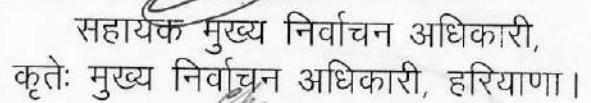 सहायक मुख्य निर्वाचन अधिकारी,
कृतेः मुख्य निर्वाचन अधिकारी, हरियाणा।